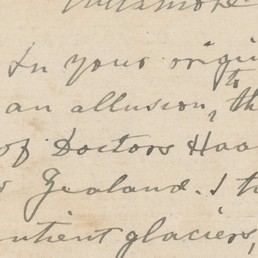 In your origin
to
an allusion, th
of Doctors Haa
Zealand. I t
ntient glaciers,